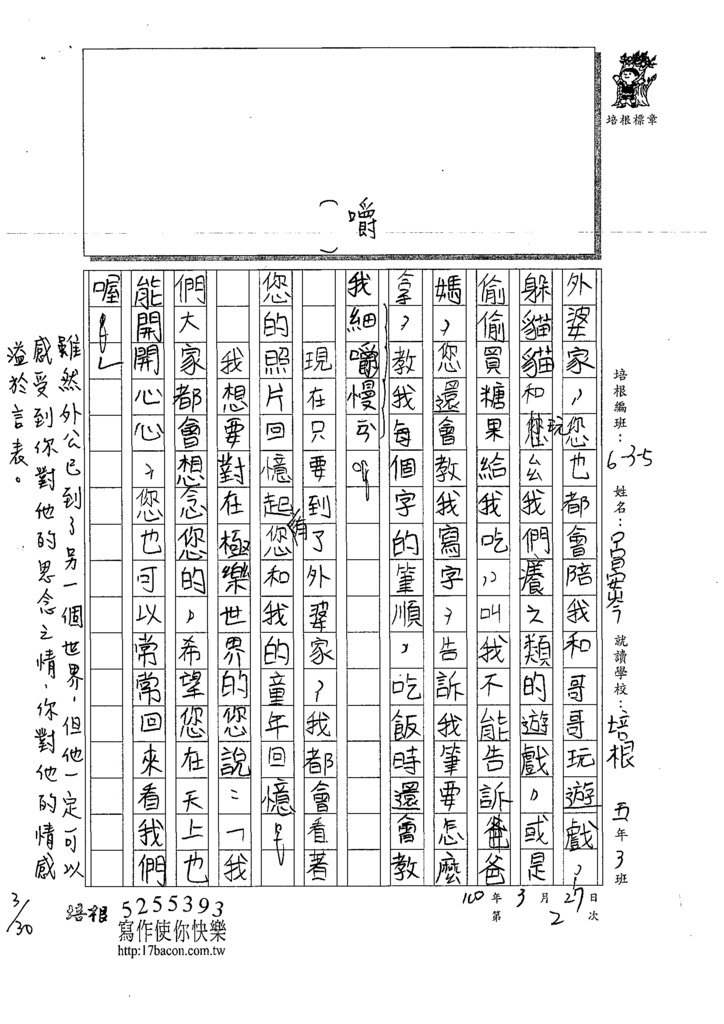 培根標章
培根編班：6-3-5 姓名：呂安岑 就讀學校：培根 五年3班
外婆家，您也都會陪我和哥哥玩遊戲，
躲貓貓和您玩幺我們癢之類的遊戲，或是
偷偷買糖果給我吃，叫我不能告訴爸爸
媽，您還會教我寫字，告訴我筆要怎麼
拿，教我每個字的筆順，吃飯時還會教
我細嚼慢ㄎ。
（嚼）
現在只要到了外婆家，我都會看著
您的照片回憶起您和我的童年回憶。
有
我想要對在極樂世界的您說：「我
們大家都會想念您的，希望您在天上也
能開開心心，您也可以常常回來看我們
喔！」
雖然外公已到了另一個世界，但他一定可以
感受到你對他的思念之情，你對他的情感
溢於言表。
3/30
100年3月27日
第2次
培根 5255393
寫作使你快樂
http:17bacon.com.tw